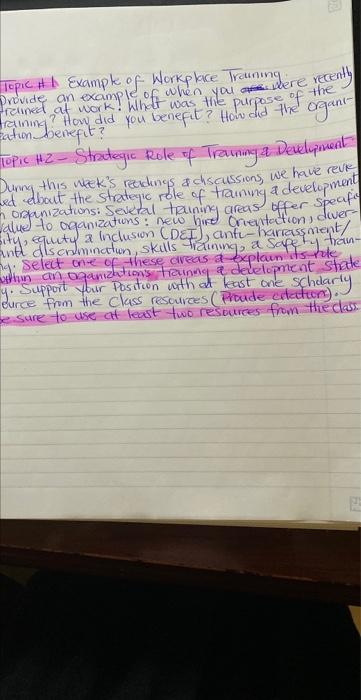 Topic #1 Example of Workplace Training.
Provide an example of when you were recently
trained at work. What was the purpose of the
training? How did you benefit? How did the organi-
zation benefit?
Topic #2 - Strategic Role of Training & Development
During this week's readings & discussions, we have revie
ed about the strategic role of training & development
n organizations. Several training areas offer specific
value to oganizations: new hire orientation, diver
sity, equity & Inclusion (DEI), anti-harrassment/
anti discrimination, skills training, & Safety train
g. Select one of these areas & explain its role
within an oganizations training & development strate
y. Support your Position with at least one scholarly
ource from the Class resources (Provide citation).
e sure to use at least two resources from the class